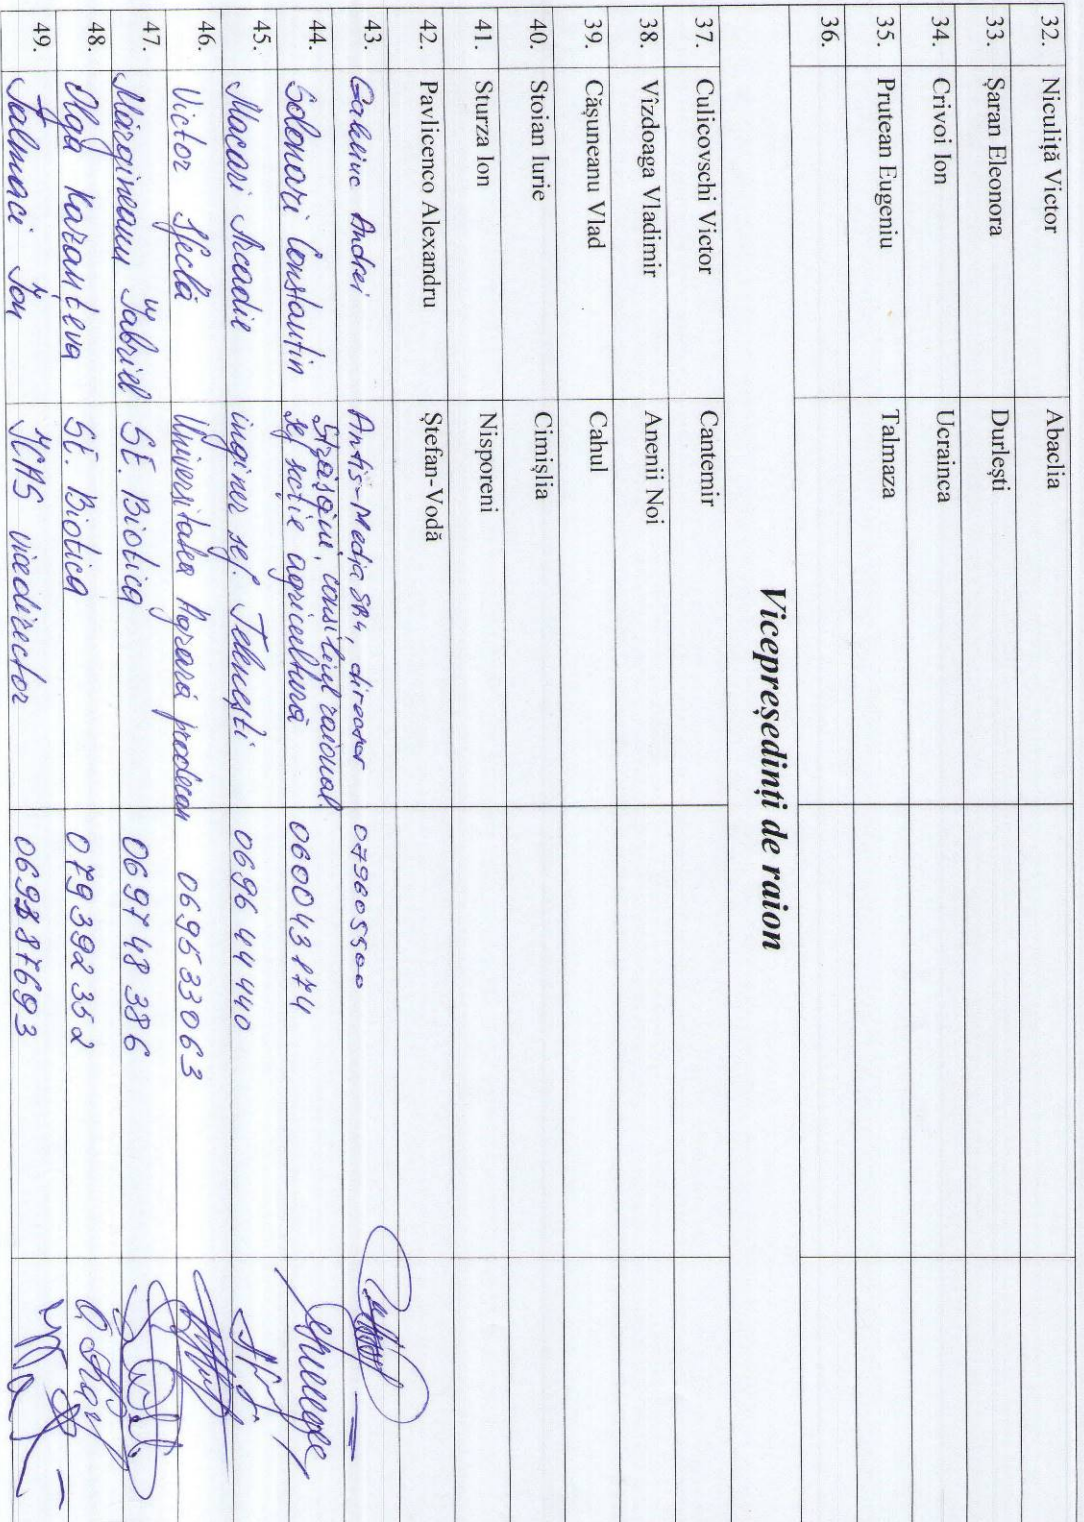 32. Niculiță Victor Abaclia
33. Șaran Eleonora Durlești
34. Crivoi Ion Ucrainca
35. Prutean Eugeniu Talmaza
36.
Vicepreședinți de raion
37. Culicovschi Victor Cantemir
38. Vîzdoaga Vladimir Anenii Noi
39. Cășuneanu Vlad Cahul
40. Stoian Iurie Cimișlia
41. Sturza Ion Nisporeni
42. Pavlicenco Alexandru Ștefan-Vodă
43. Andrei Antis-Media SRL, director 079605500
44. Solonari Constantin Strășeni, consiliul raional
șef secție agricultură 060043874
45. Macari Arcadie inginer șef. Telenești 0696 44 440
46. Victor Sfeclă Universitatea Agrară prodecan 069533063
47. Mărgineanu Gabriel SE. Biotica 0697 48 386
48. Olga Kazanteva SE. Biotica 079392352
49. Talmaci Ion vicedirector 069887693